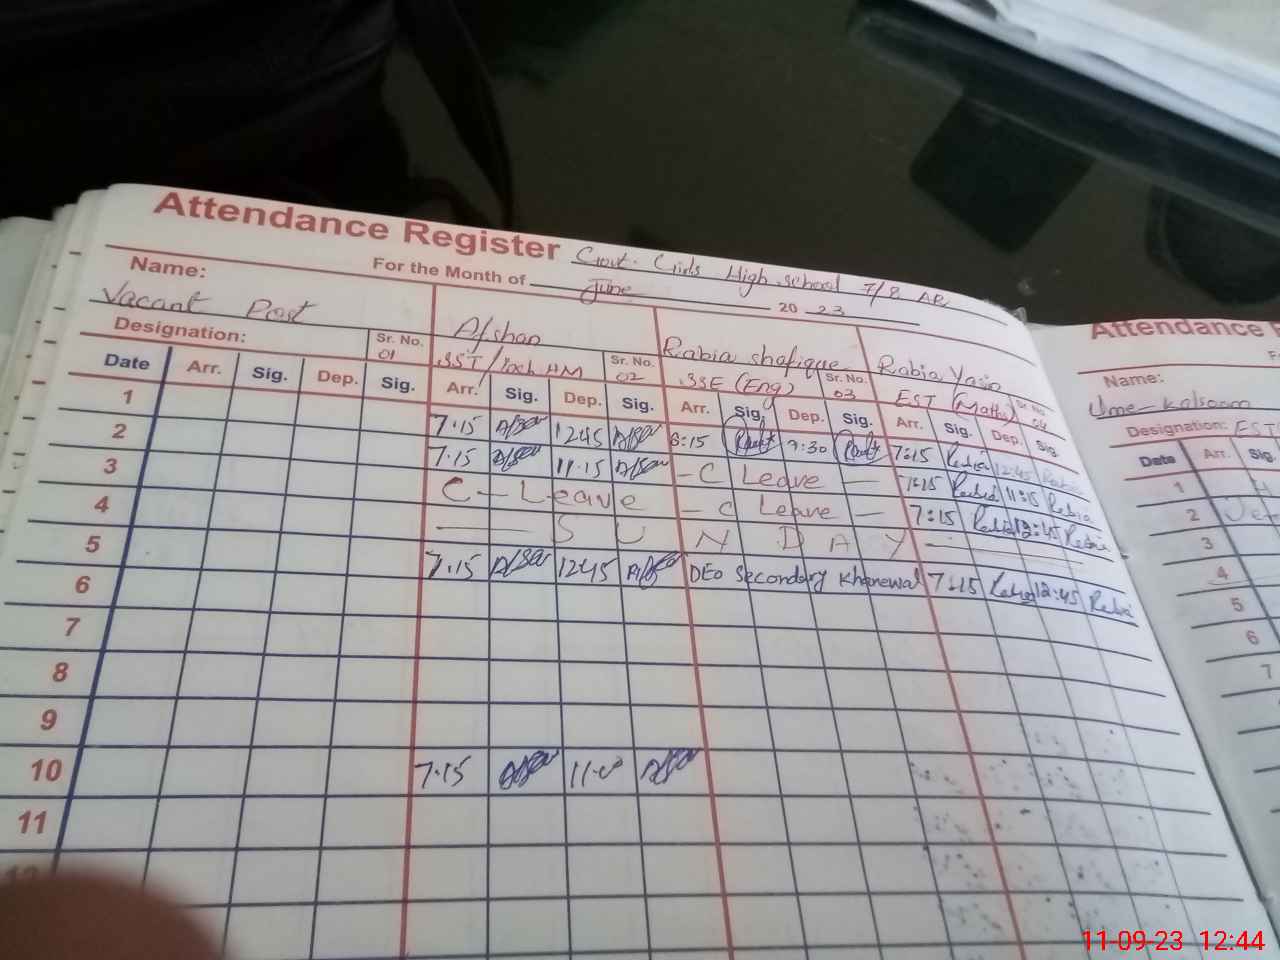 Attendance Register Govt. Girls High school 7/8 AR
For the Month of June 20 23
Name:
Vacant Post Afshan Rabia shafique Rabia Yasin
Designation: Sr. No. 01 SST/Inch HM Sr. No. 02 SSE (Eng) Sr. No. 03 EST (Maths) Sr. No. 04
Date Arr. Sig. Dep. Sig. Arr. Sig. Dep. Sig. Arr. Sig. Dep. Sig. Arr. Sig. Dep. Sig.
1 7:15 1245 8:15 9:30 7:15 Rabia 12:45 Rabia
2 7:15 11:15 - C Leave - 7:15 Rabia 11:15 Rabia
3 C - Leave - C Leave - 7:15 Rabia 12:45 Rabia
4 S U N D A Y
5 7:15 1245 DEO Secondary Khanewal 7:15 Rabia 12:45 Rabia
6
7
8
9
10 7:15
11
12
Attendance
Name:
Ume-Kalsoom
Designation: EST
Date Arr. Sig.
1
2
3
4
5
6
7
11-09-23 12:44